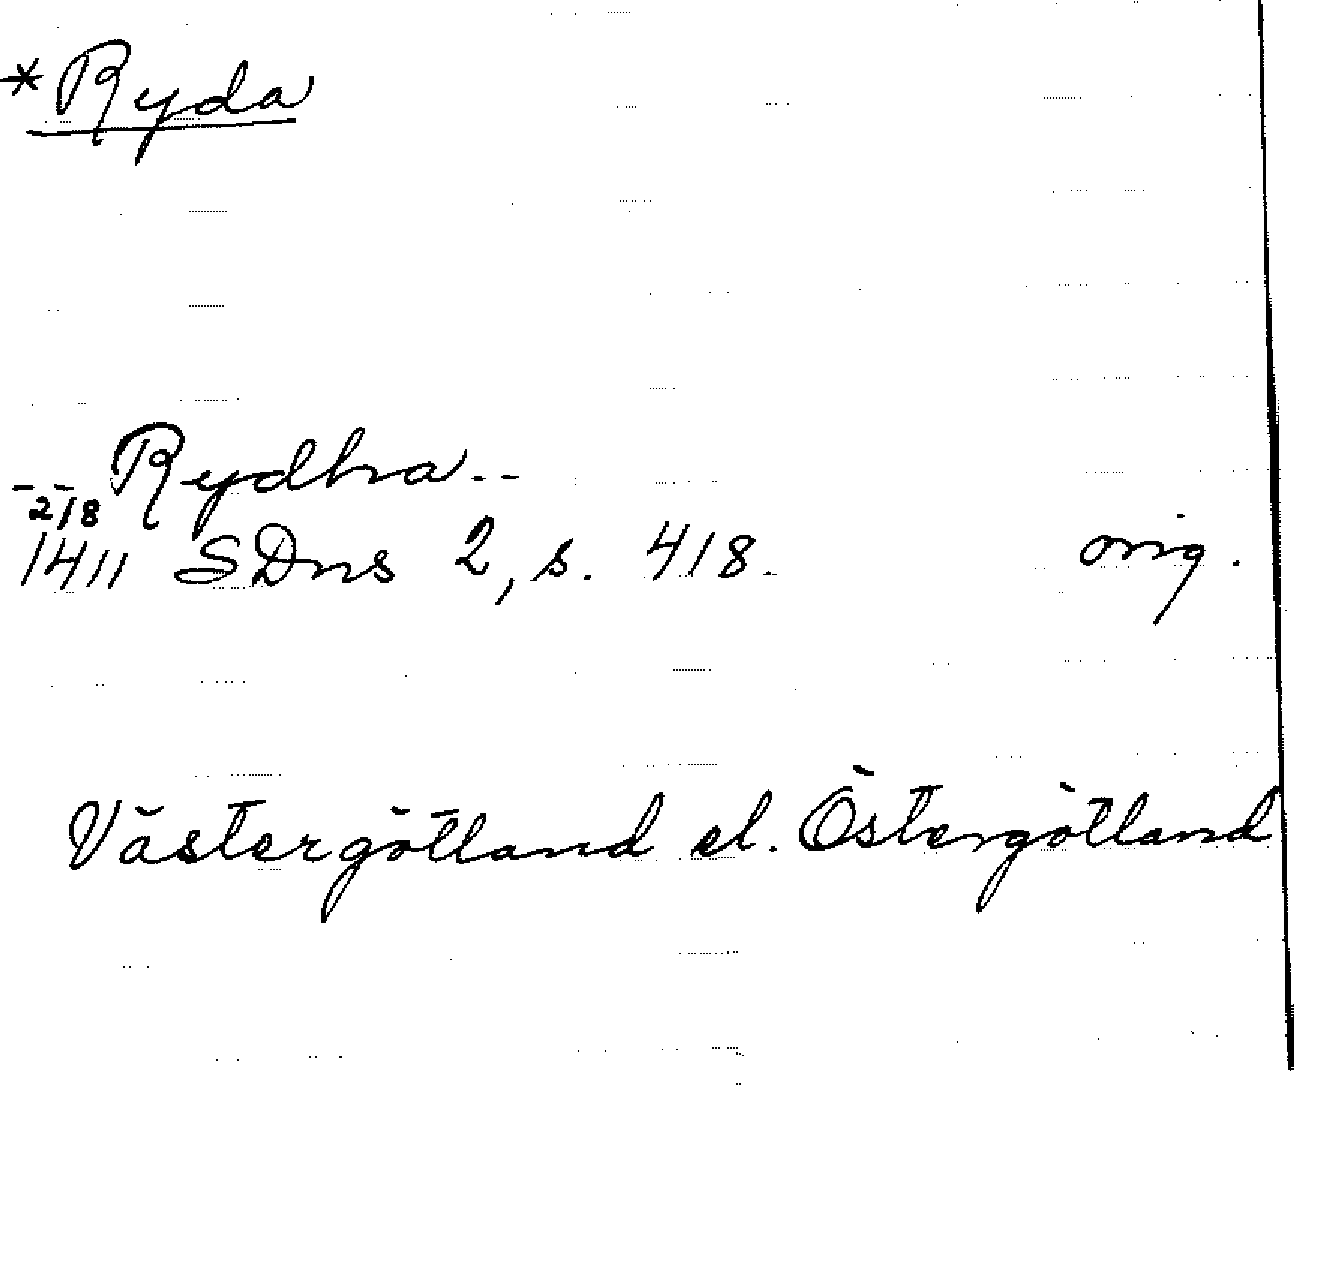 *Ryda
-- Rydha --
2/8
1411 SDns 2, s. 418. orig.
Västergötland el. Östergötland